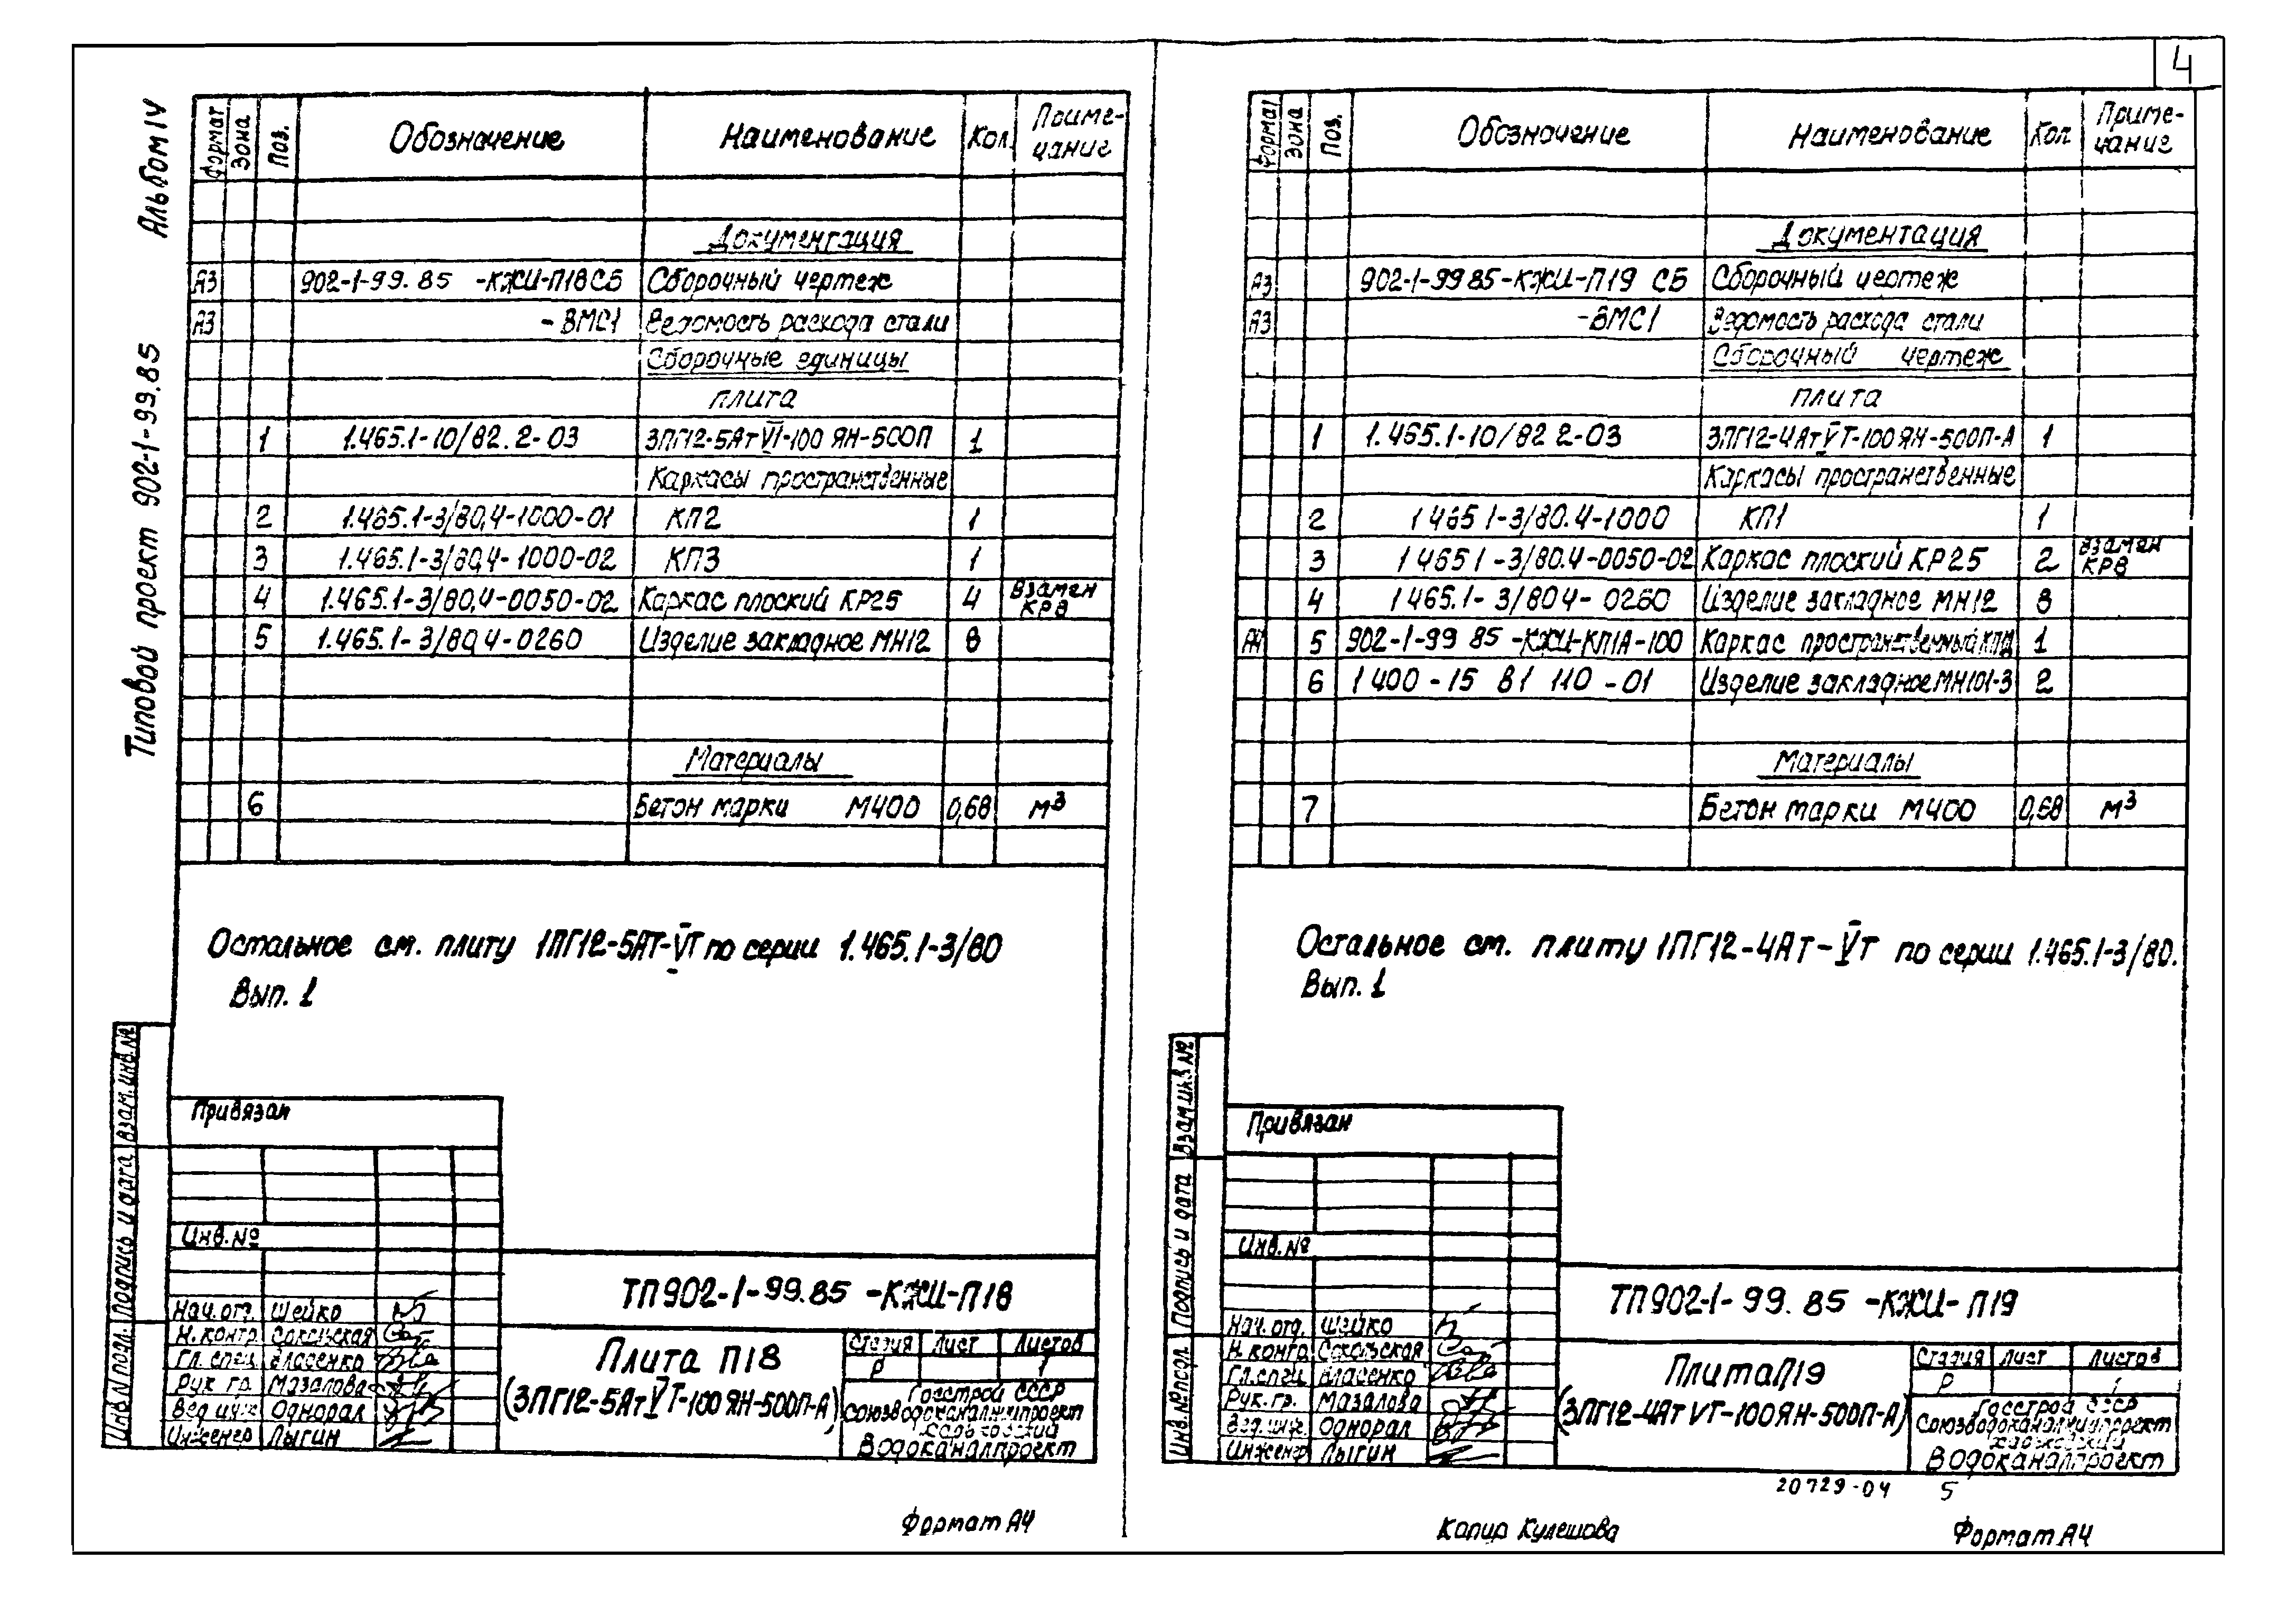 4
Альбом IV
Типовой проект 902-1-99.85
Формат Зона Поз. Обозначение Наименование Кол. Приме-
чание
Документация
А3 902-1-99.85 -КЖИ-П18СБ Сборочный чертеж
А3 -ВМС1 Ведомость расхода стали
Сборочные единицы
плита
1 1.465.1-10/82.2-03 3ПГ12-5АтVI-100 ЯН-500П 1
Каркасы пространственные
2 1.465.1-3/80,4-1000-01 КП2 1
3 1.465.1-3/80,4-1000-02 КП3 1
4 1.465.1-3/80,4-0050-02 Каркас плоский КР25 4 Взамен
КР8
5 1.465.1-3/80,4-0260 Изделие закладное МН12 8
Материалы
6 Бетон марки М400 0,68 м³
Остальное см. плиту 1ПГ12-5АТ-VТ по серии 1.465.1-3/80
Вып. 1
Привязан
Инв. №
Взам. инв. №
Подпись и дата
Инв. N подл.
ТП902-1-99.85 -КЖИ-П18
Нач. отд. Шейко
Н. контр. Сокольская
Гл. спец. Власенко
Рук. гр. Мазалова
Вед. инж. Однорал
Инженер Лыгин
Плита П18
(3ПГ12-5АтVТ-100 ЯН-500П-А)
Стадия Лист Листов
Р 1
Госстрой СССР
Союзводоканалниипроект
Харьковский
Водоканалпроект
Формат А4
Формат Зона Поз. Обозначение Наименование Кол Приме-
чание
Документация
А3 902-1-99 85-КЖИ-П19 СБ Сборочный чертеж
А3 -ВМС1 Ведомость расхода стали
Сборочный чертеж
плита
1 1.465.1-10/82 2-03 3ПГ12-4АтVТ-100ЯН-500П-А 1
Каркасы пространственные
2 1 465 1-3/80.4-1000 КП1 1
3 1 465 1-3/80.4-0050-02 Каркас плоский КР25 2 Взамен
КР8
4 1 465.1-3/80 4-0260 Изделие закладное МН12 8
А4 5 902-1-99 85-КЖИ-КП1А-100 Каркас пространственный 1
6 1 400-15 В1 110-01 Изделие закладное МН101-3 2
Материалы
7 Бетон марки М400 0,68 м³
Остальное см. плиту 1ПГ12-4Ат-VТ по серии 1.465.1-3/80.
Вып. 1
Привязан
Инв. №
Взам инв №
Подпись и дата
Инв. № подл.
ТП902-1-99.85 -КЖИ-П19
Нач. отд. Шейко
Н. контр. Сокольская
Гл. спец. Власенко
Рук. гр. Мазалова
Вед. инж. Однорал
Инженер Лыгин
Плита П19
(3ПГ12-4Ат VТ-100ЯН-500П-А)
Стадия Лист Листов
Р 1
Госстрой СССР
Союзводоканалниипроект
Харьковский
Водоканалпроект
20729-04 5
Копир Кулешова
Формат А4